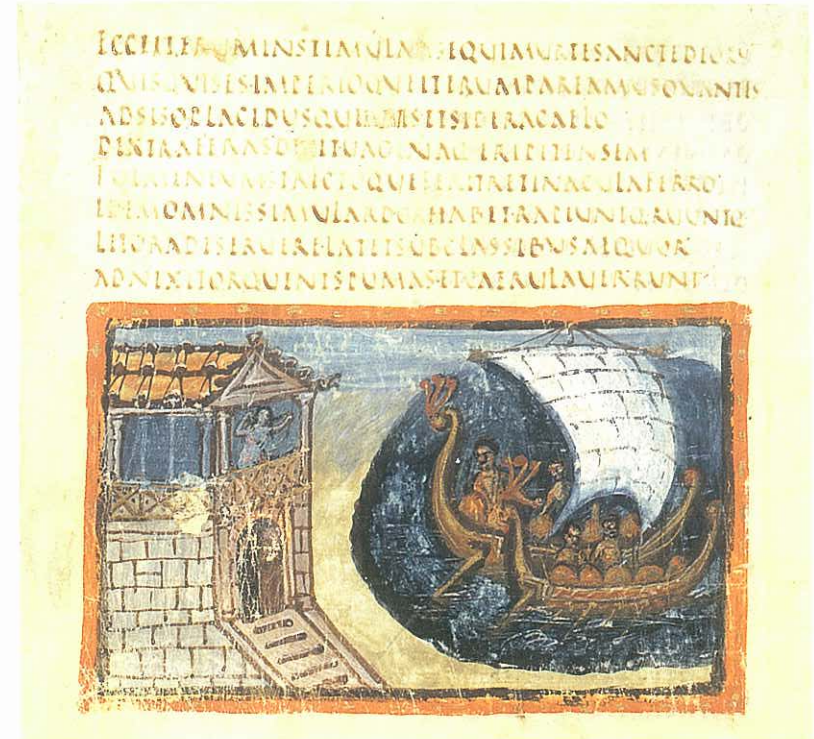 ECCEITERUMINSTIMULATSEQUIMURTESANCTEDEORU
QUISQUISESIMPERIOQUEITERUMPAREAMUSOVANTIS
ADSISOPLACIDUSQUEIUBESETSIDERACAELO
DEXTRAFERASDIXITUAGINAQ·ERIPITENSEM
FULMINEUMSTRICTOQUEFERITRETINACULAFERRO
IDEMOMNISSIMULARDORHABET·RAPIUNTQ·RUUNTQ·
LITORADESERUERE·LATETSUBCLASSIBUSAEQUOR
ADNIXITORQUENTSPUMAS·ETCAERULAUERRUNT